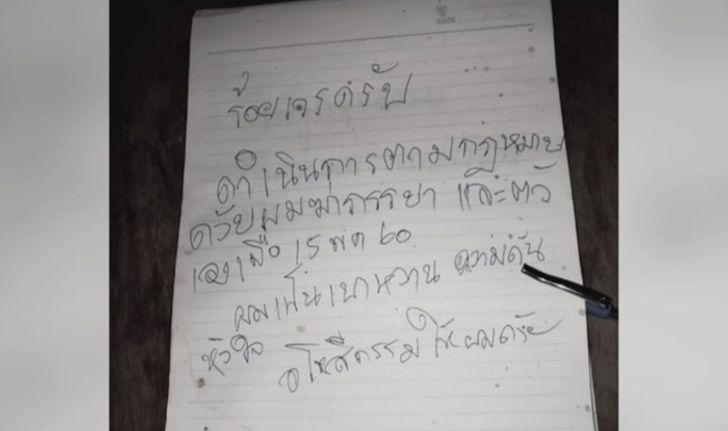 DATE:
ร้อยเวรครับ
ดำเนินการตามกฎหมาย
ครับผมฆ่าภรรยา และตัว
เองเมื่อ พค 60
ผมเป็นเบาหวาน ความดัน
หัวใจ อโหสิกรรมให้ผมครับ